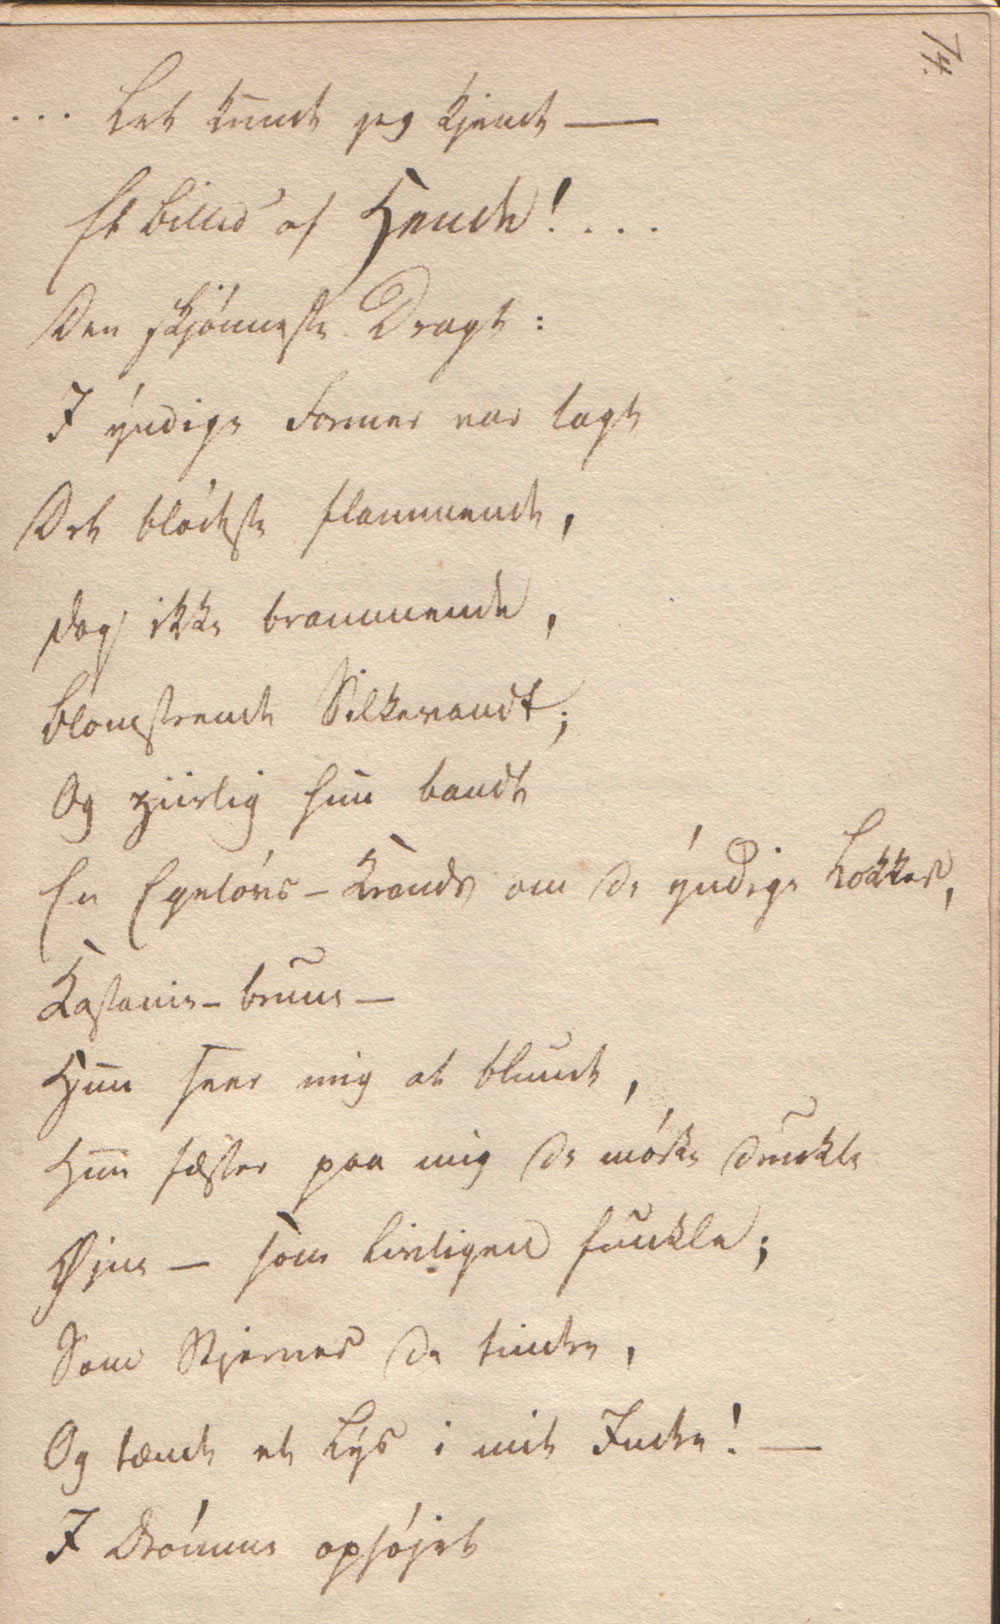 74.
... Let kunde jeg kjende —
Et Billed af Hende! ....
Den skjönneste Dragt:
I yndige Former var lagt
Det blödeste flammende,
Dog ikke brammende,
Blomstrende Silkevandt;
Og ziirlig hun bandt
En Egelövs-Krands om de yndige Lokker,
Kastanie-brune —
Hun seer mig at blunde,
Hun fæster paa mig de mörke dunkle
Øjne — som livligen funkle;
Som Stjerner de tindre,
Og tænde et Lys i mit Indre! —
I Drömme ophöjet